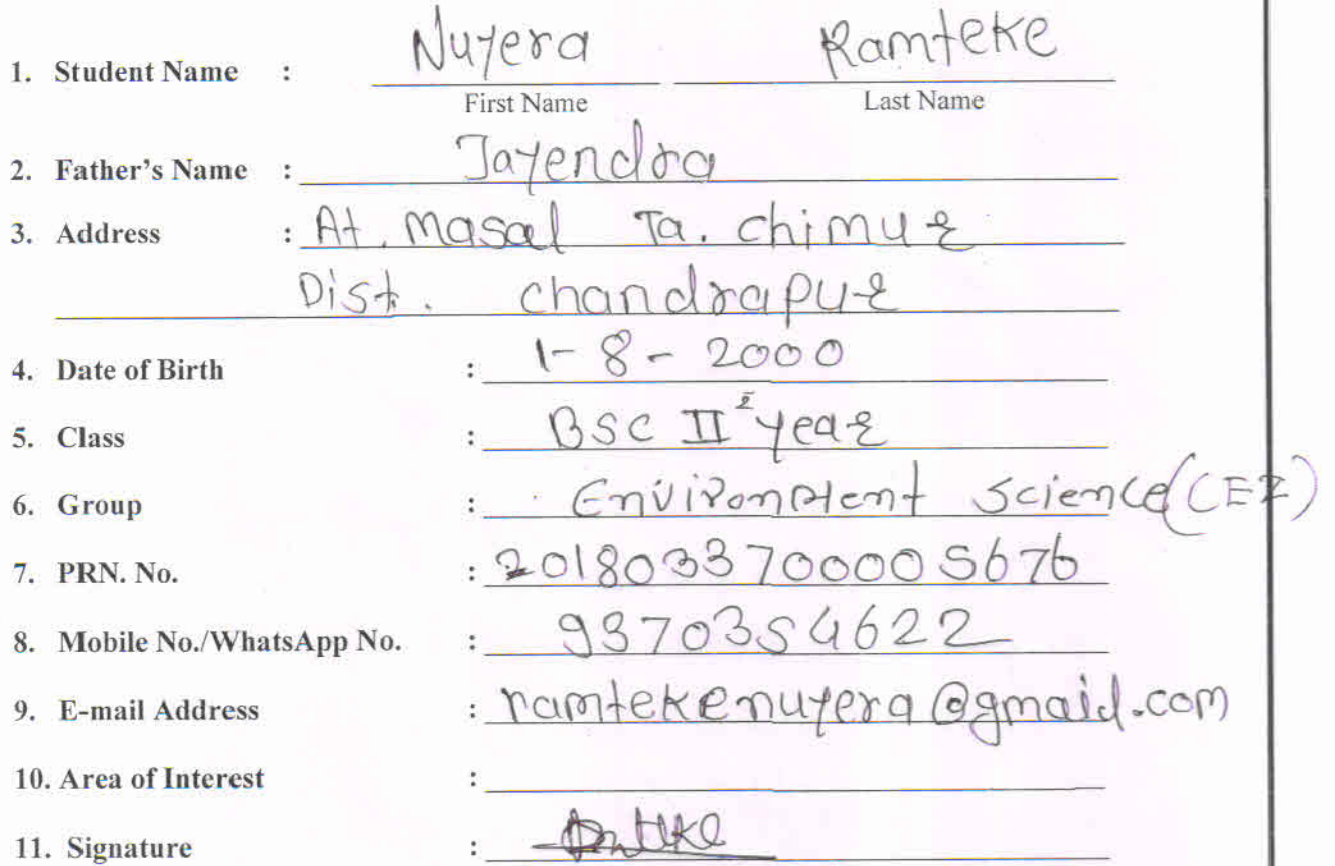 1. Student Name : Nuyera Ramteke
First Name Last Name
2. Father's Name : Jayendra
3. Address : At. Masal Ta. chimur
Dist. chandrapur
4. Date of Birth : 1-8-2000
5. Class : BSC II year
6. Group : Environment Science (CEZ)
7. PRN. No. : 2018033700005676
8. Mobile No./WhatsApp No. : 9370354622
9. E-mail Address : ramtekenuyera@gmail.com
10. Area of Interest :
11. Signature :